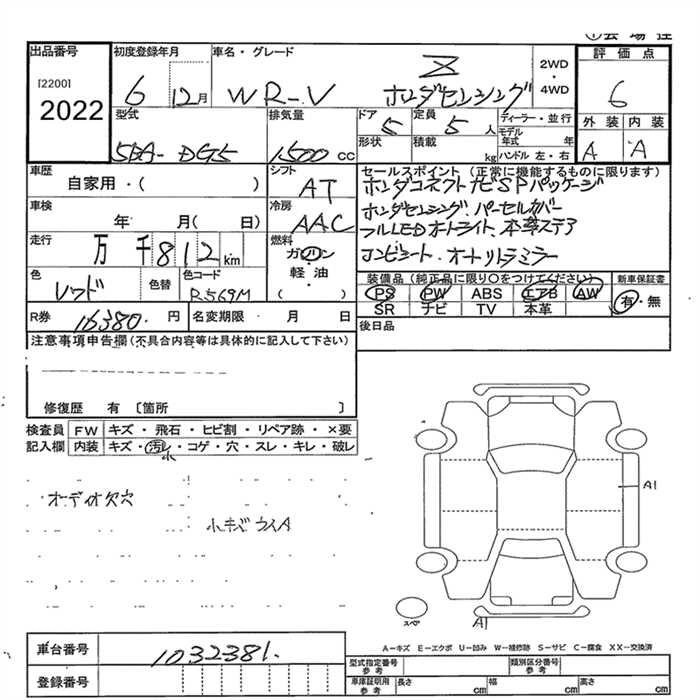 出品番号
[2200]
2022
初度登録年月
6 12月
車名・グレード
WR-V Z
ホンダセンシング
2WD
・
4WD
評価点
6
外装 内装
A A
型式
5BA-DG5
排気量
1500 cc
ドア
5
定員
5 人
形状
積載
kg
ディーラー・並行
モデル年式 年
ハンドル 左・右
車歴
自家用・( )
シフト
AT
車検
年 月( 日)
冷房
AAC
走行
万 千812km
燃料
ガソリン
軽油
( ・ )
色
レッド
色替
色コード
R569M
R券
16380. 円
名変期限 ・ 月 日
セールスポイント (正常に機能するものに限ります)
ホンダコネクトナビSPパッケージ
ホンダセンシング. パーセルカバー
フルLEDオートライト 本革ステア
コンビシート. オートリトラミラー
装備品(純正品に限り○をつけてください)
PS PW ABS エアB AW
SR ナビ TV 本革
新車保証書
有・無
後日品
注意事項申告欄(不具合内容等は具体的に記入して下さい)
修復歴 有 〔箇所 〕
検査員 FW キズ・飛石・ヒビ割・リペア跡・×要
記入欄 内装 キズ・汚レ・コゲ・穴・スレ・キレ・破レ
小
オーディオ欠穴
小キズウスA
A1
スペア
A1
A-キズ E-エクボ U-凹み W-補修跡 S-サビ C-腐食 XX-交換済
車台番号
1032381.
登録番号
型式指定番号
参考
類別区分番号
参考
車庫証明用
参考
長さ cm
幅 cm
高さ cm